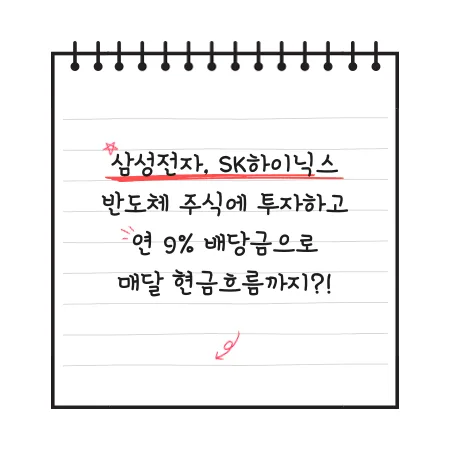 삼성전자, SK하이닉스
반도체 주식에 투자하고
연 9% 배당금으로
매달 현금흐름까지?!